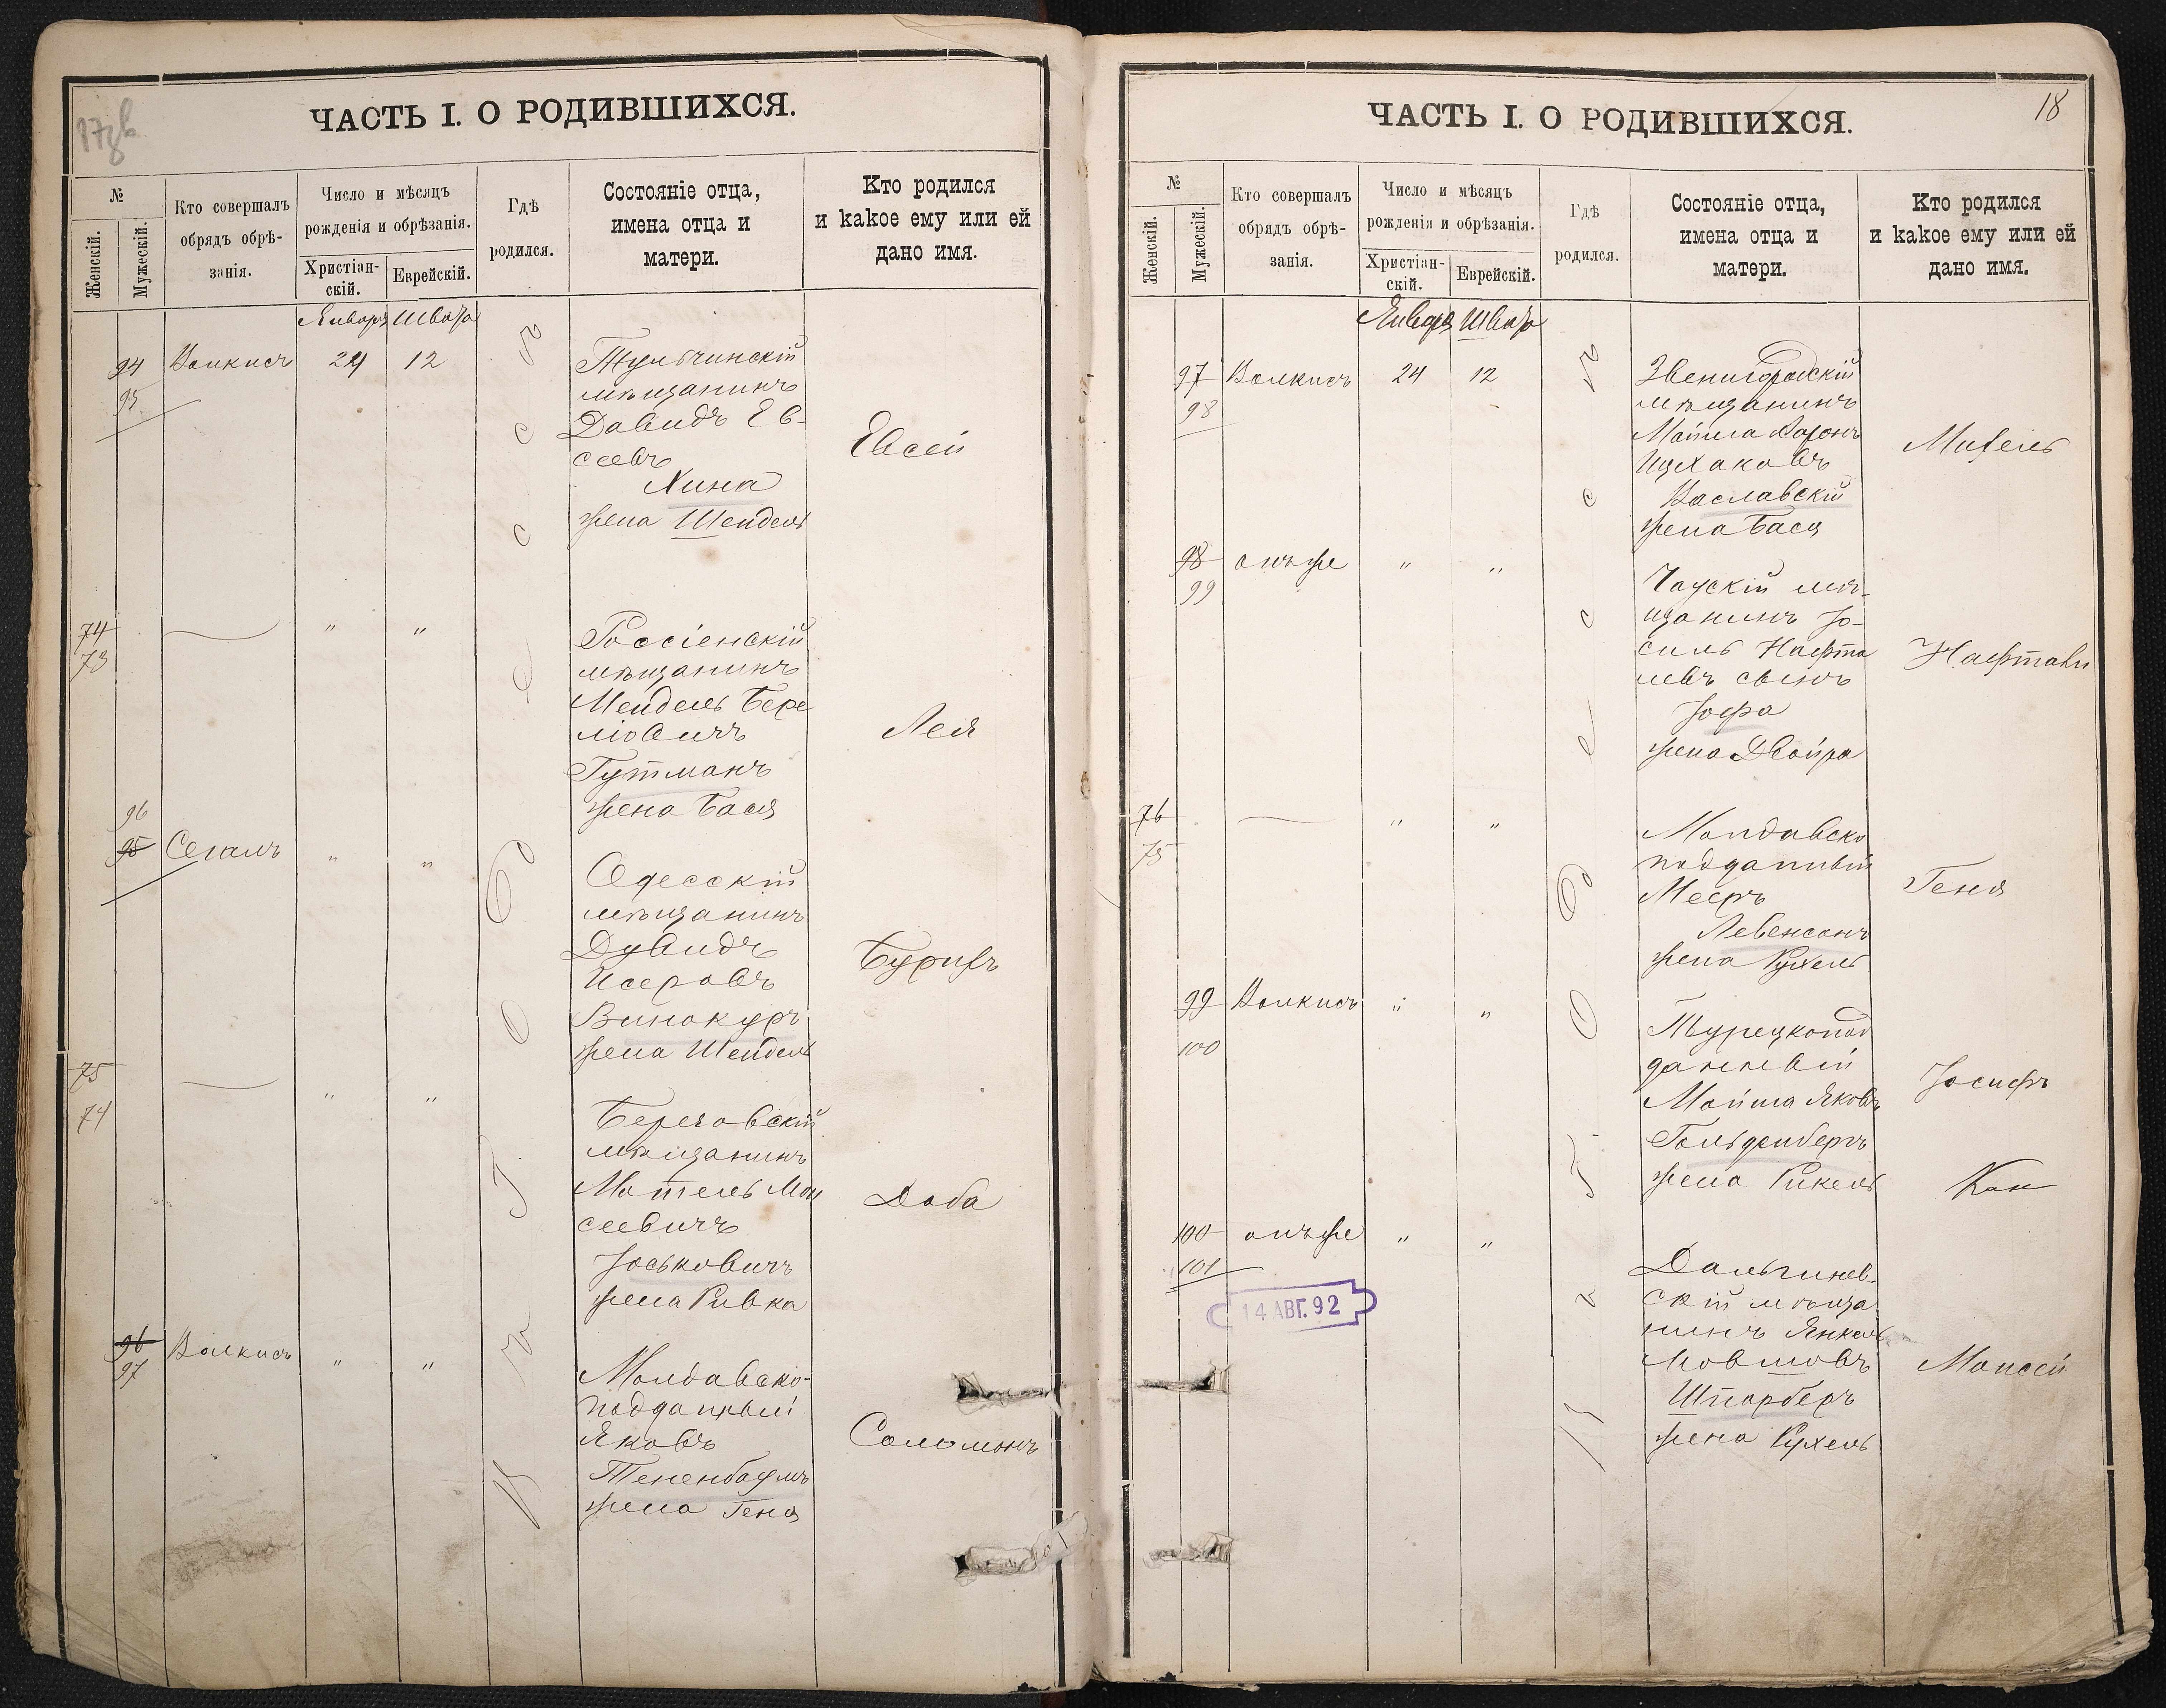 17об
ЧАСТЬ I. О РОДИВШИХСЯ.
№
Женскій.
Мужескій.
Кто совершалъ
обрядъ обрѣ-
занія.
Число и мѣсяцъ
рожденія и обрѣзанія.
Христіан-
скій.
Еврейскій.
Гдѣ
родился.
Состояніе отца,
имена отца и
матери.
Кто родился
и какое ему или ей
дано имя.
Января Швата
94 Волкисъ 24 12
95
Тульчинскій
мѣщанинъ
Давидъ Ев-
сеевъ
Хина
жена Шейдель
Евсей
74 " "
73
Россіенскій
мѣщанинъ
Мендель Бере
ліовичъ
Гутманъ
жена Бася
Лея
96
95 Сегалъ " "
Одесскій
мѣщанинъ
Дувидъ
Исеровъ
Винокуръ
жена Шейдель
75 " "
74
Береговскій
мѣщанинъ
Мотель Мои
сеевичъ
Іоськовичъ
жена Ривка
Доба
96 Волкисъ " "
97
Молдавско-
подданный
Яковъ
Тененбаумъ
жена Геня
Соломонъ
18
ЧАСТЬ I. О РОДИВШИХСЯ.
№
Женскій.
Мужескій.
Кто совершалъ
обрядъ обрѣ-
занія.
Число и мѣсяцъ
рожденія и обрѣзанія.
Христіан-
скій.
Еврейскій.
Гдѣ
родился.
Состояніе отца,
имена отца и
матери.
Кто родился
и какое ему или ей
дано имя.
Января Швата
97 Волкисъ 24 12
98
Звенигородскій
мѣщанинъ
Мойша Аронъ
Ицхаковъ
Заславскій
жена Бася
98 онъ же " "
99
Чаускій мѣ-
щанинъ Іо-
силь Нафта
левъ сынъ
Іофа
жена Двойра
Нафтали
76 " "
75
Молдавско
подданный
Мееръ
Левенсонъ
жена Рухель
Геня
99 Волкисъ " "
100
Турецкопод
данный
Мойша Яковъ
Гольденбергъ
жена Рикель
Іосифъ
100 онъ же " "
101
14 АВГ. 92
Дальгинов-
скій мѣща
нинъ Янкель
Мовшовъ
Шпарберъ
жена Рухель
Моисей